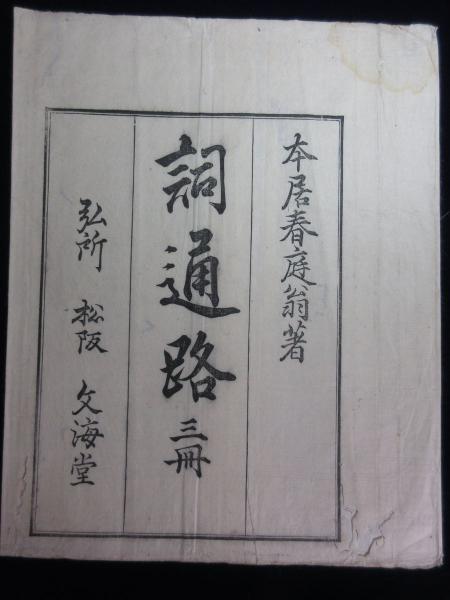 本居春庭翁著
詞通路 三冊
弘所 松阪 文海堂